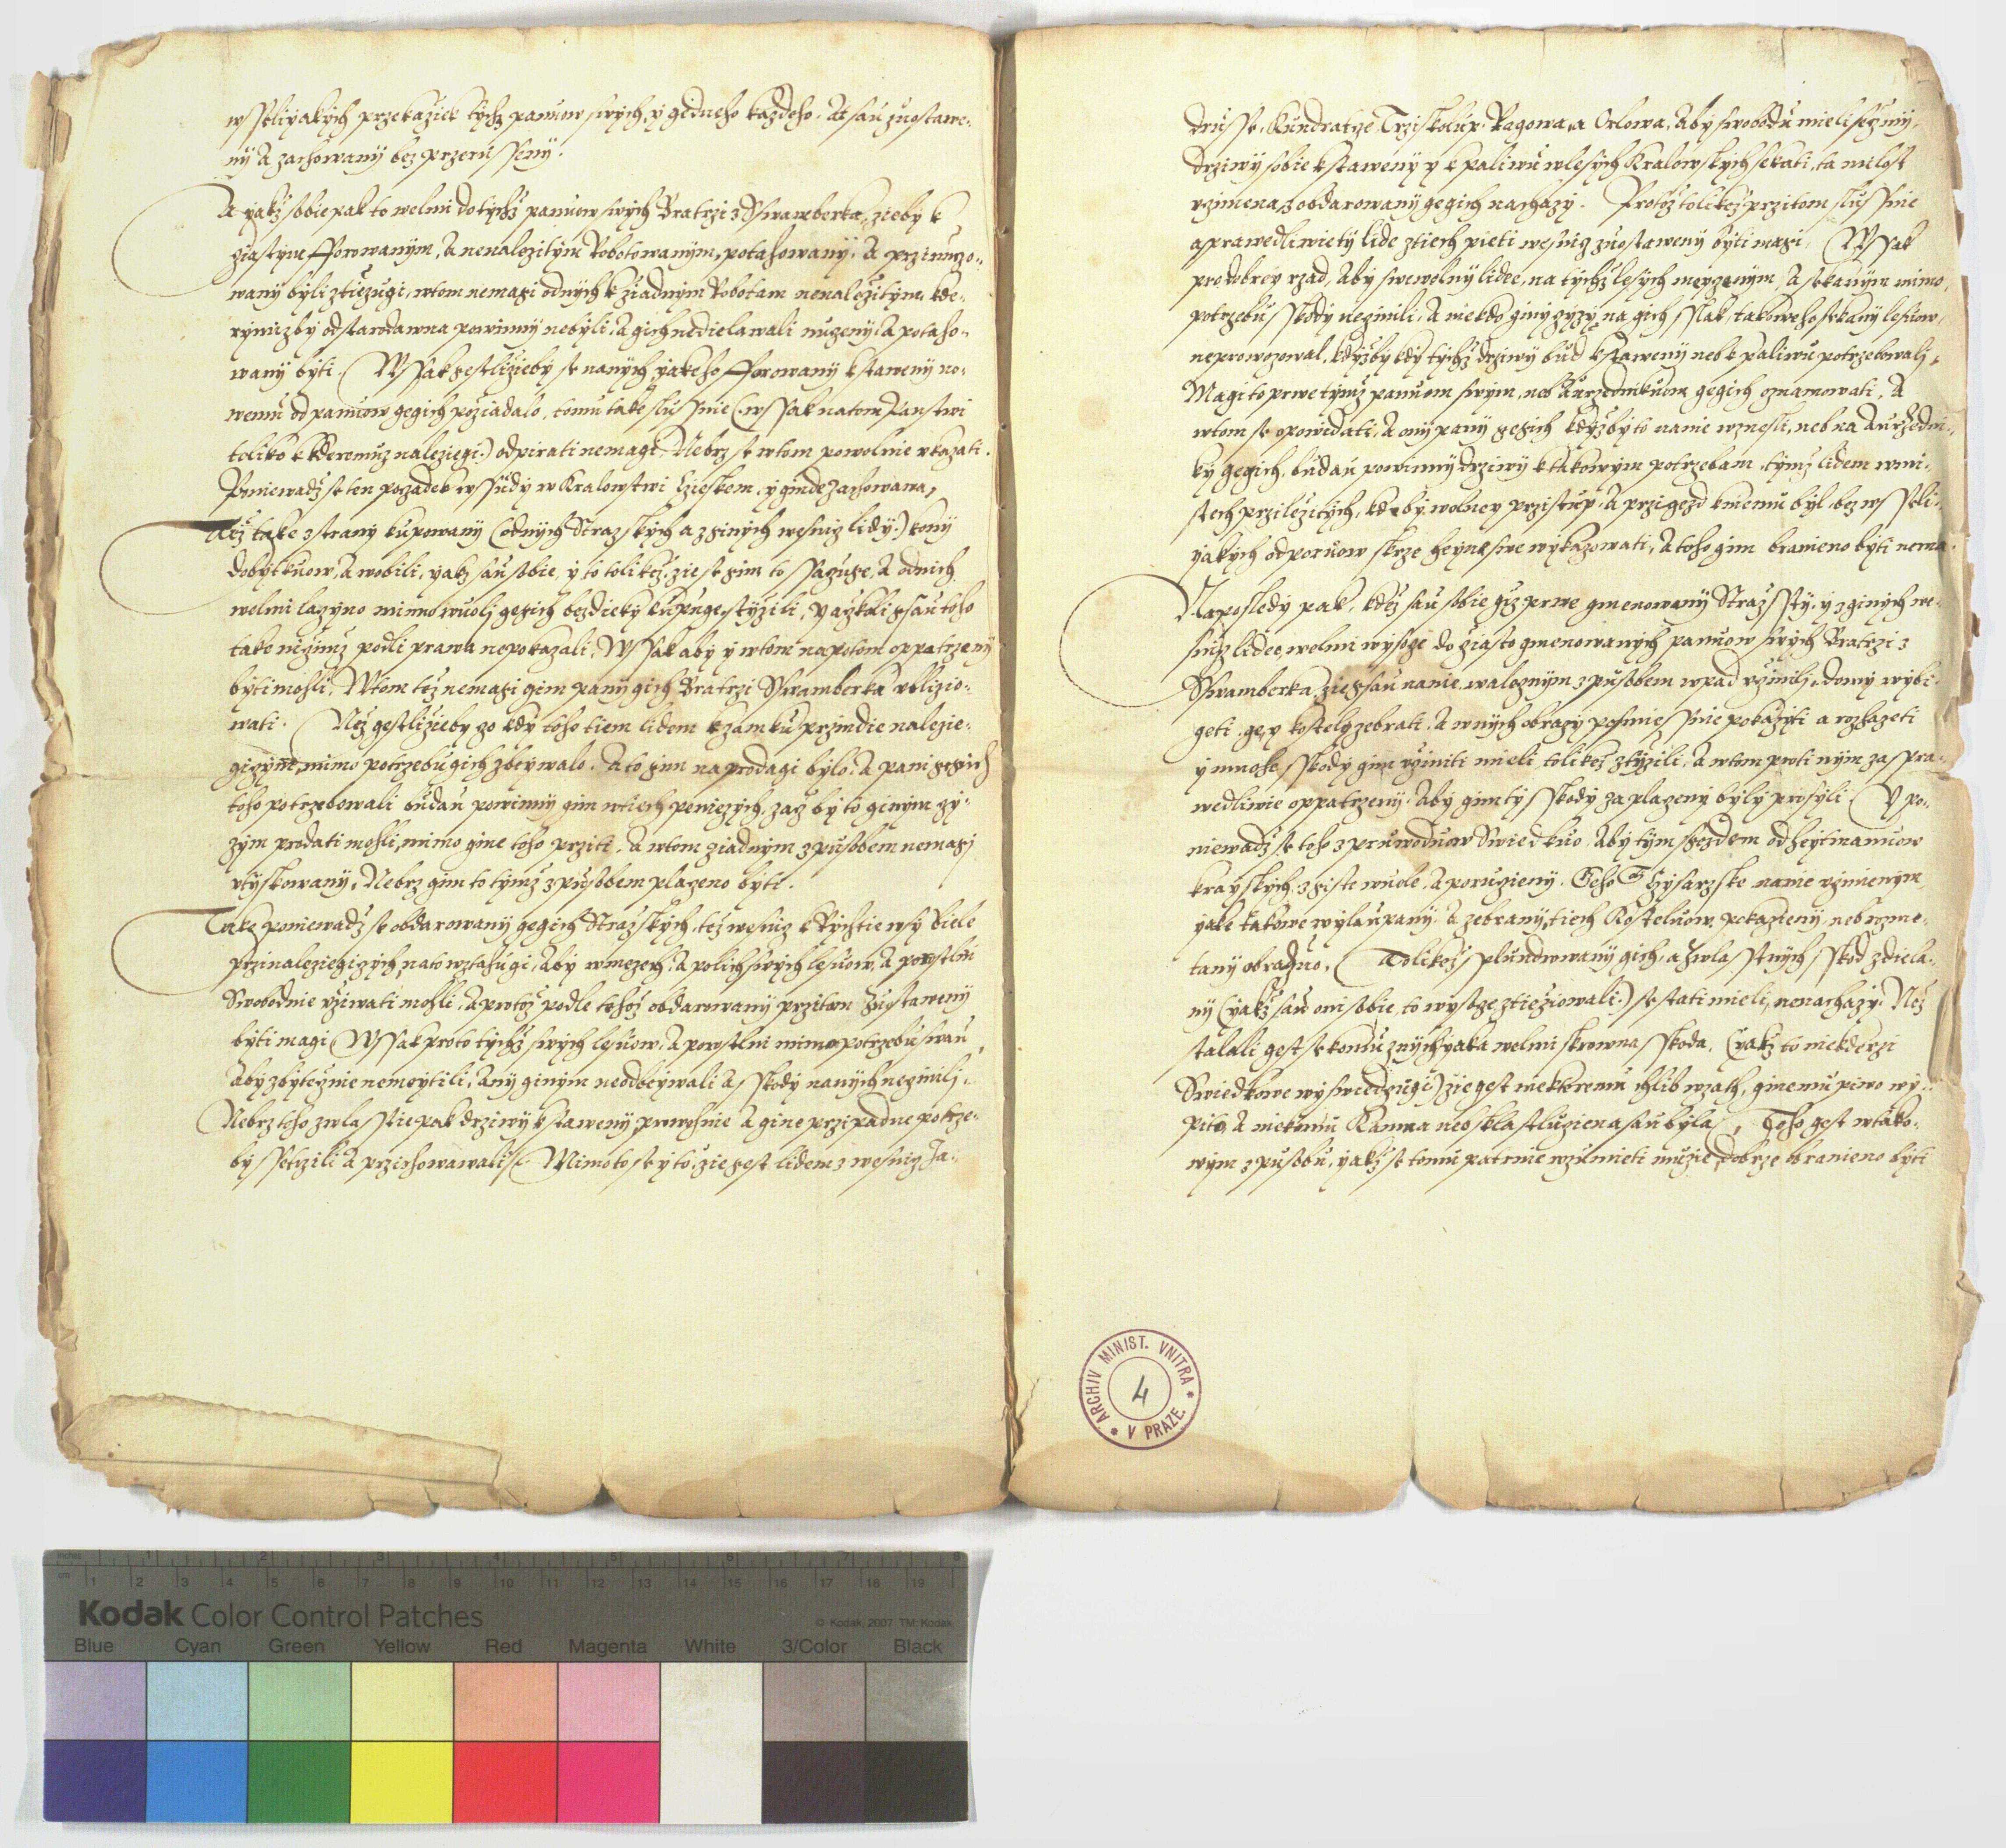 wsseliyakych przekaziek tychz panuow swych, y gednoho kazdeho. At sau zuostawe-
ny A zachowany bez przerussenij.
A yakz sobie pak to welmi do tychz panuow swych Bratrzi z Sswamberka, zieby k
ziastym fforowanym, A nenalezitym Robotowanym, potahowany, A przinuczo-
wany byli ztiezugi, w tom nemagi od nych k ziadnym Robotam nenalezitym, kte-
rymizby od starodawna powinny nebyli, A gich nedielawali nuzeny, A potaho-
wany byti. Wssak gestlizieby se na nych yakeho fforowany k staweny no-
wemu od panuow gegich poziadalo, tomu take slussnie (wssak na tom Panstwi
toliko k kteremuz naleziegi) odpirati nemagi, Nebrz se w tom powolnie vkazati.
Poniewadz se ten porzadek wssudy w Kralowstwi Czieskem, y ginde zachowawa,
Tez take z strany kupowany (od nych Strazskych a z ginych wesnicz lidy) kony
dobytkuow, A wobili, yakz sau sobie, y to tolikez, zie se gim to ssaczuge, A od nich
welmi laczyno mimo wuoli gegich bezdieky kupuge, stiezili, y aczkoli gsau toho
tako niczimz podli prawa nepokazali, Wssak aby y w tom napotom oppatrzeny
byti mohli, W tom tez nemagi gim pany gich Bratrzi Sswamberka vblizio-
wati. Nez gestlizieby czo kdy toho tiem lidem k zamku przindie nalezie-
giczym, mimo potrzebu gich zbeywalo, A to gim na prodagi bylo, A pani gegich
toho potrzebowali budau powinny gim w tiech peniezych, zacz by to ginym czy-
zym prodati mohli, mimo gine toho prziti, A w tom ziadnym zpusobem nemagi
vtyskowany, Nebrz gim to tymz zpusobem placzeno byti.
Takz poniewadz se obdarowany gegich Strazskych, tez wesnicz k Rychtie wsy Biele
przinaleziegiczych, na to wztahugi, Aby w mezech, A polich swych lesuow, A porostlin
Swobodnie vziwati mohli, A protoz podle tohoz obdarowany przitom zuostaweny
byti magi, Wssak proto tychz swych lesuow, A porostlin mimo potrzebu swau
Aby zbyteznie nemeytili, Any ginym neodbeywali A sskody na nych neczinili,
Nebrz toho zwlasstie pak drziwy k staweny prowchnie A gine przipadne potrze-
by ssetrzili A przichowawali. Mimo to se y to, zie gest lidem z wesnicz Ja-
drusse, Kundratcze, Trziskolup, Ragowa, a Orlowa, Aby swobodu mieli sez my-
drziwy sobie k staweny y k paliwu w lesych Kralowskych sekati, ta milost
vczinena, z obdarowany gegich nachazy. Protoz tolikez przitom slussnie
a prawedliwie ty lide z tiech pieti wesnicz zuostaweny byti magi, Wssak
pro dobrey rzad, Aby swewolny lidee, na tychz lesych meyczenym, A sekanym mimo,
potrzebu sskody neczinili, A niekdo giny czyzy na gich sslak, takoweho sekany lesuow,
neprowozowal, kdyzby kdy tychz drziwy bud k staweny neb k paliwu potrzebowali,
Magi to prwe tymz panuom swym, neb Aurzednikuom gegich oznamowati, A
w tom se opowidati, A ony pany gegich kdyzby to na nie wznesli, neb na Aurzedni-
ky gegich, budau powinny drziwy k takowym potrzebam, tymz lidem w mi-
stech przilezitych, kdeby wolney przistup, A przigezd k niemu byl, bez wsseli-
yakych odporuow skrze heyne swe wykazowati, A toho gim branieno byti nema.
Naposledy pak, kdez sau sobie giz prwe gmenowany Strazssty, y z ginych we-
snicz lidee, welmi wysocze do ziasto gmenowanych panuow swych Bratrzi z
Sswamberka, zie gsau na nie walecznym zpusobem wpad vczinili, domy wybi-
geti, gegy kostely zebrati, A w nych obrazy posmiessnie pokazyti a rozhazeti
y mnohe sskody gim vcziniti mieli tolikez ztiezili, A w tom proti nym za spra-
wedliwie oppatrzeny, Aby gim ty sskody zaplaczeny byly prosyli. Y po-
niewadz se toho z pruwoduow Swiedkuo, Aby tym sgezdem od heytmanuow
krayskych, z giste wuole, A poruczieny, Geho Mti Cysarzske na nie vczinienym,
yake takowe wylaupany, A zebrany, tiech Kosteluow, pokazieny neb rozme-
tany obrazuo, Tolikez splundrowany gich, a zwlasstnych sskod zdiela-
ny (yakz sau oni sobie, to wysocze ztieziowali) se stati mieli, nenachazy. Nez
stalali gest se komu z nych yaka welmi skrowna sskoda, (yakz to niekderzi
Swiedkowe wyswiedczugi) zie gest niekteremu chlib wzath, ginemu piwo wy-
pito, A niekomu Kamna neb skla stluczena sau byla, Toho gest w tako-
wym zpusobu, yakz se tomu patrnie wzrumieti muzie, dobrze obranieno byti
ARCHIV MINIST. VNITRA * V PRAZE. *
4
inches 1 2 3 4 5 6 7 8
cm 1 2 3 4 5 6 7 8 9 10 11 12 13 14 15 16 17 18 19
Kodak Color Control Patches
© Kodak, 2007 TM: Kodak
Blue Cyan Green Yellow Red Magenta White 3/Color Black